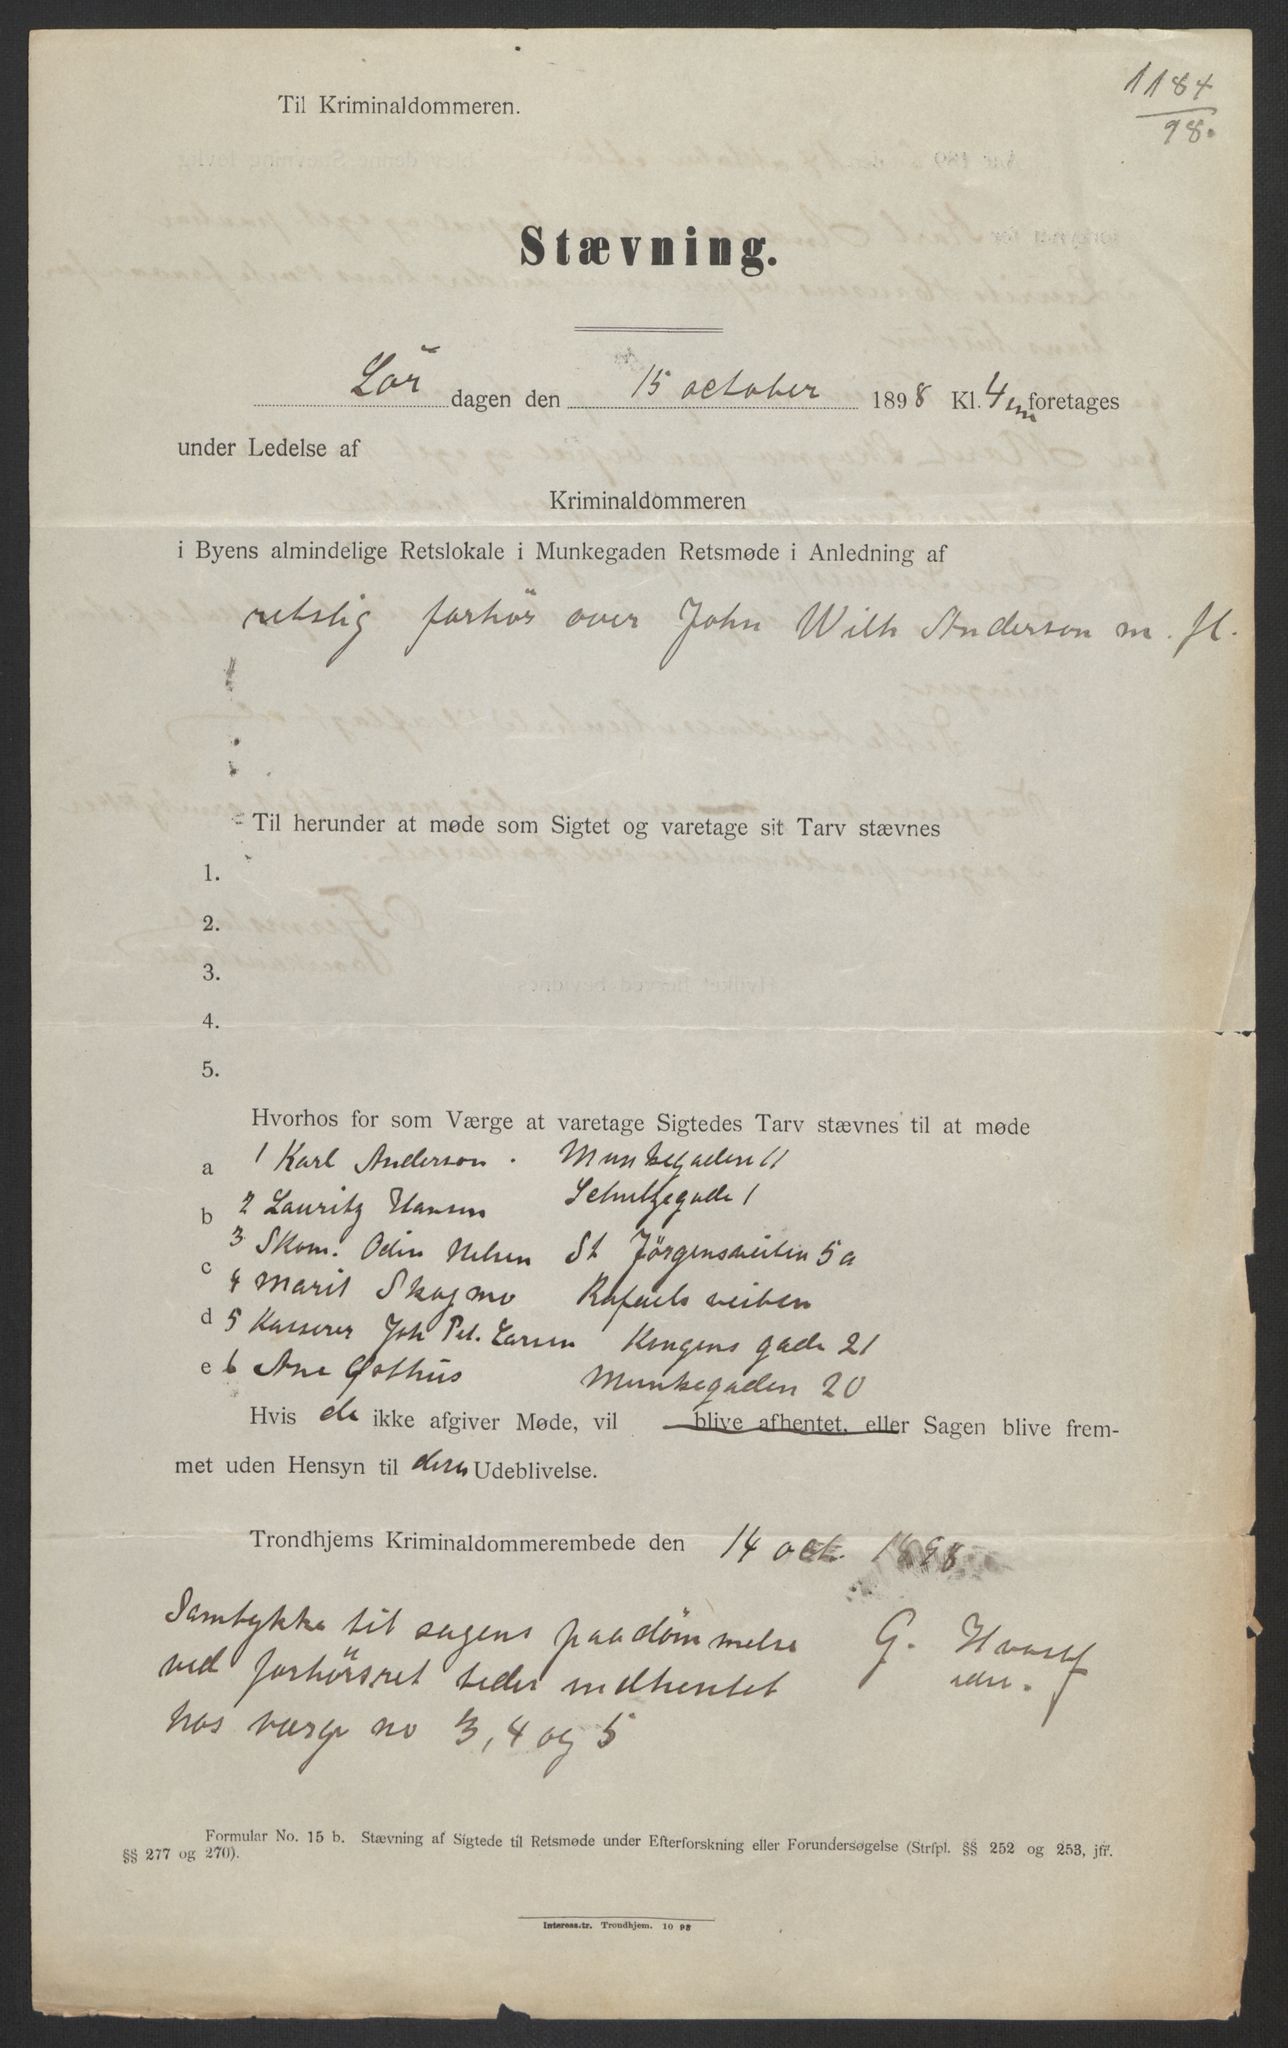 1184
98.
Til Kriminaldommeren.
Stævning.
Lör dagen den 15 october 1898 Kl. 4 em foretages
under Ledelse af
Kriminaldommeren
i Byens almindelige Retslokale i Munkegaden Retsmøde i Anledning af
retslig forhör over John Wilh Anderson m. fl.
Til herunder at møde som Sigtet og varetage sit Tarv stævnes
1.
2.
3.
4.
5.
Hvorhos for som Værge at varetage Sigtedes Tarv stævnes til at møde
a 1 Karl Anderson. Munkegaden 11
b 2 Lauritz Hansen Schultzegade 1
c 3 Skom. Odin Nelsen St Jørgensveiten 5a
d 4 Marit Skogmo Rafaels veiten
e 5 Kasserer Joh Pet. Larsen Kongens gade 21
6 Ane Gothus Munkegaden 20
Hvis de ikke afgiver Møde, vil blive afhentet, eller Sagen blive frem-
met uden Hensyn til deres Udeblivelse.
Trondhjems Kriminaldommerembede den 14 oct. 1898
Samtykke til sagens paadömmelse
ved forhörsret bedes indhentet
hos værge no 3, 4 og 5
G.
Formular No. 15 b. Stævning af Sigtede til Retsmøde under Efterforskning eller Forundersøgelse (Strfpl. §§ 252 og 253, jfr.
§§ 277 og 270).
Interess.tr. Trondhjem. 10 98